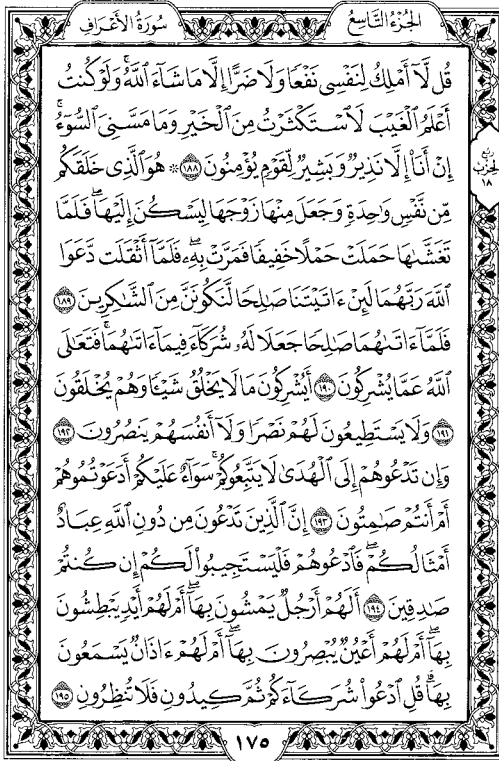 سُورَةُ الْأَعْرَافِ
الجُزْءُ التَّاسِعُ
قُل لَّآ أَمْلِكُ لِنَفْسِى نَفْعًا وَلَا ضَرًّا إِلَّا مَا شَآءَ ٱللَّهُ ۚ وَلَوْ كُنتُ
أَعْلَمُ ٱلْغَيْبَ لَٱسْتَكْثَرْتُ مِنَ ٱلْخَيْرِ وَمَا مَسَّنِىَ ٱلسُّوٓءُ ۚ
إِنْ أَنَا۠ إِلَّا نَذِيرٌ وَبَشِيرٌ لِّقَوْمٍ يُؤْمِنُونَ ١٨٨ ۞ هُوَ ٱلَّذِى خَلَقَكُم
مِّن نَّفْسٍ وَٰحِدَةٍ وَجَعَلَ مِنْهَا زَوْجَهَا لِيَسْكُنَ إِلَيْهَا ۖ فَلَمَّا
تَغَشَّىٰهَا حَمَلَتْ حَمْلًا خَفِيفًا فَمَرَّتْ بِهِۦ ۖ فَلَمَّآ أَثْقَلَت دَّعَوَا
ٱللَّهَ رَبَّهُمَا لَئِنْ ءَاتَيْتَنَا صَٰلِحًا لَّنَكُونَنَّ مِنَ ٱلشَّٰكِرِينَ ١٨٩
فَلَمَّآ ءَاتَىٰهُمَا صَٰلِحًا جَعَلَا لَهُۥ شُرَكَآءَ فِيمَآ ءَاتَىٰهُمَا ۚ فَتَعَٰلَى
ٱللَّهُ عَمَّا يُشْرِكُونَ ١٩٠ أَيُشْرِكُونَ مَا لَا يَخْلُقُ شَيْـًٔا وَهُمْ يُخْلَقُونَ
١٩١ وَلَا يَسْتَطِيعُونَ لَهُمْ نَصْرًا وَلَآ أَنفُسَهُمْ يَنصُرُونَ ١٩٢
وَإِن تَدْعُوهُمْ إِلَى ٱلْهُدَىٰ لَا يَتَّبِعُوكُمْ ۚ سَوَآءٌ عَلَيْكُمْ أَدَعَوْتُمُوهُمْ
أَمْ أَنتُمْ صَٰمِتُونَ ١٩٣ إِنَّ ٱلَّذِينَ تَدْعُونَ مِن دُونِ ٱللَّهِ عِبَادٌ
أَمْثَالُكُمْ ۖ فَٱدْعُوهُمْ فَلْيَسْتَجِيبُوا۟ لَكُمْ إِن كُنتُمْ
صَٰدِقِينَ ١٩٤ أَلَهُمْ أَرْجُلٌ يَمْشُونَ بِهَآ ۖ أَمْ لَهُمْ أَيْدٍ يَبْطِشُونَ
بِهَآ ۖ أَمْ لَهُمْ أَعْيُنٌ يُبْصِرُونَ بِهَآ ۖ أَمْ لَهُمْ ءَاذَانٌ يَسْمَعُونَ
بِهَا ۗ قُلِ ٱدْعُوا۟ شُرَكَآءَكُمْ ثُمَّ كِيدُونِ فَلَا تُنظِرُونِ ١٩٥
ربع
الحزب
١٨
١٧٥